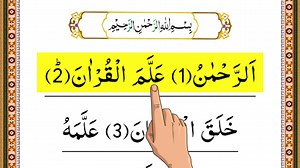 بِسْمِ اللهِ الرَّحْمٰنِ الرَّحِيْمِ
اَلرَّحْمٰنُ (1) عَلَّمَ الْقُرْاٰنَ (2ؕ)
خَلَقَ (3) عَلَّمَهُ